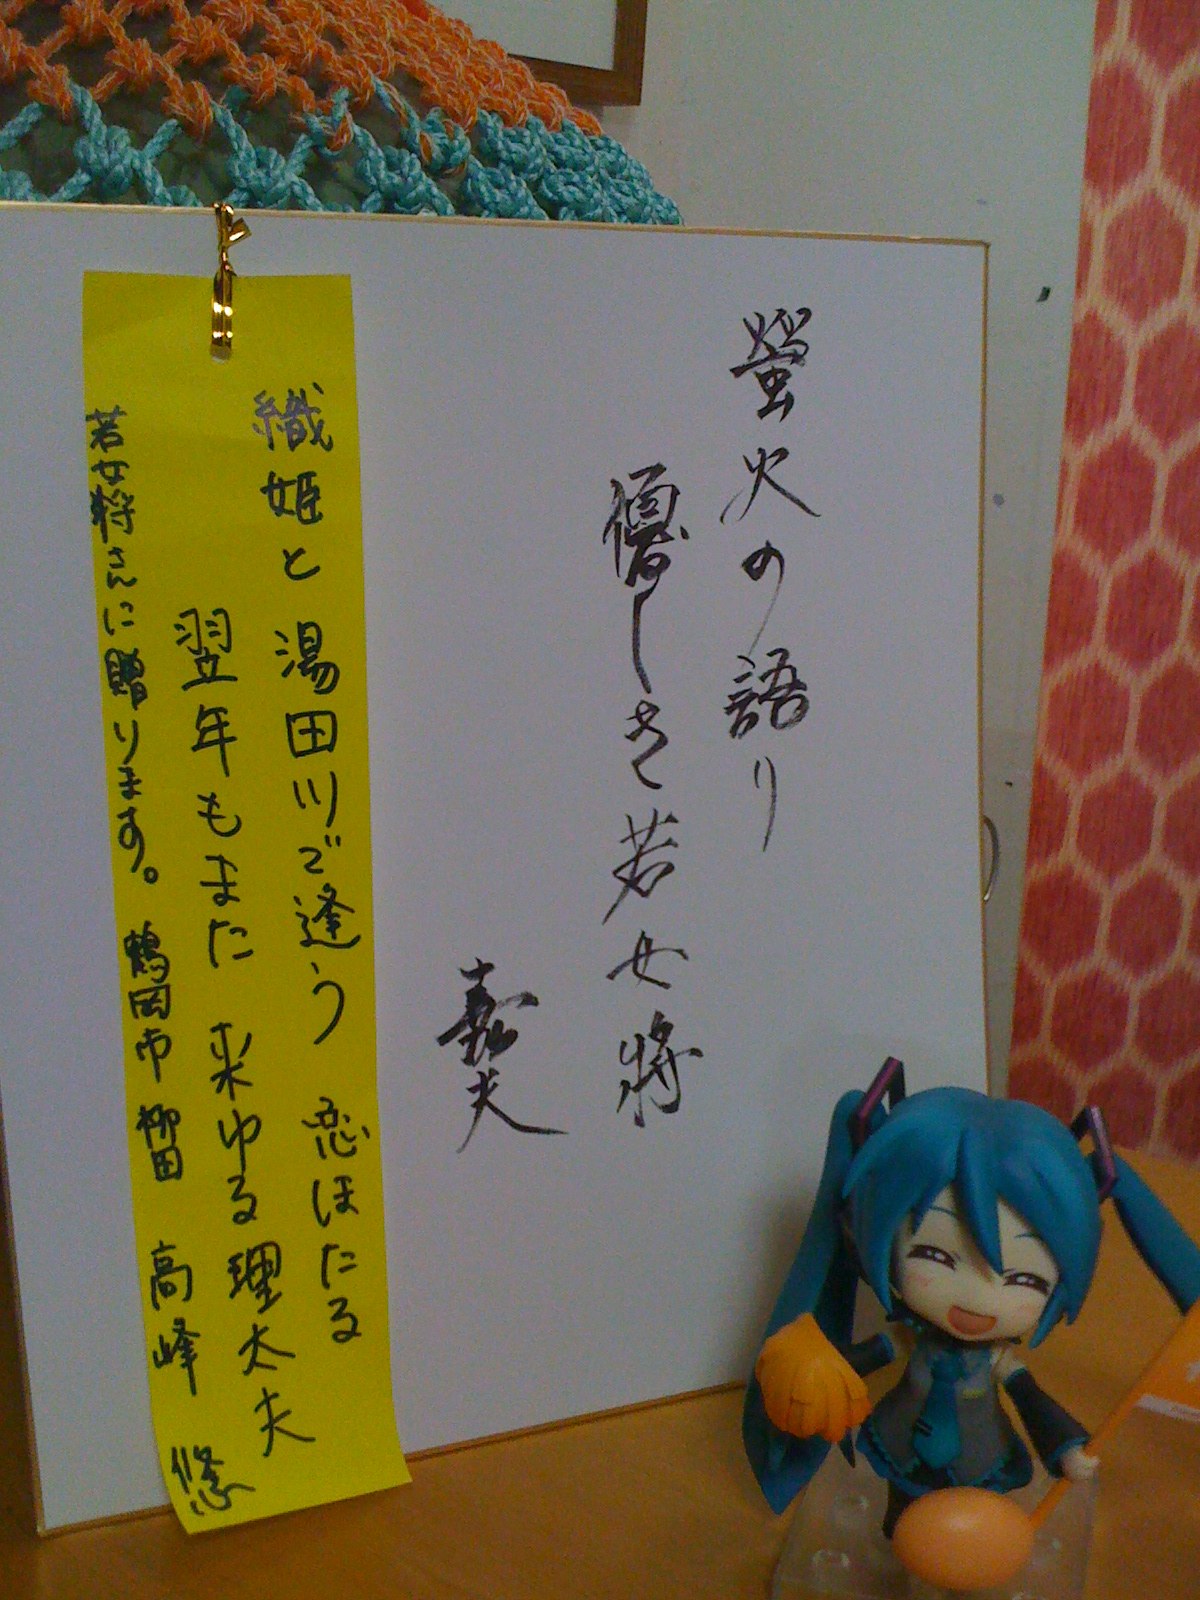 螢火の語り
優しき若女将
嘉夫
織姫と湯田川で逢う 恋ほたる
翌年もまた 来ゆる理太夫
若女将さんに贈ります。 鶴岡市 柳田 高峰 悠